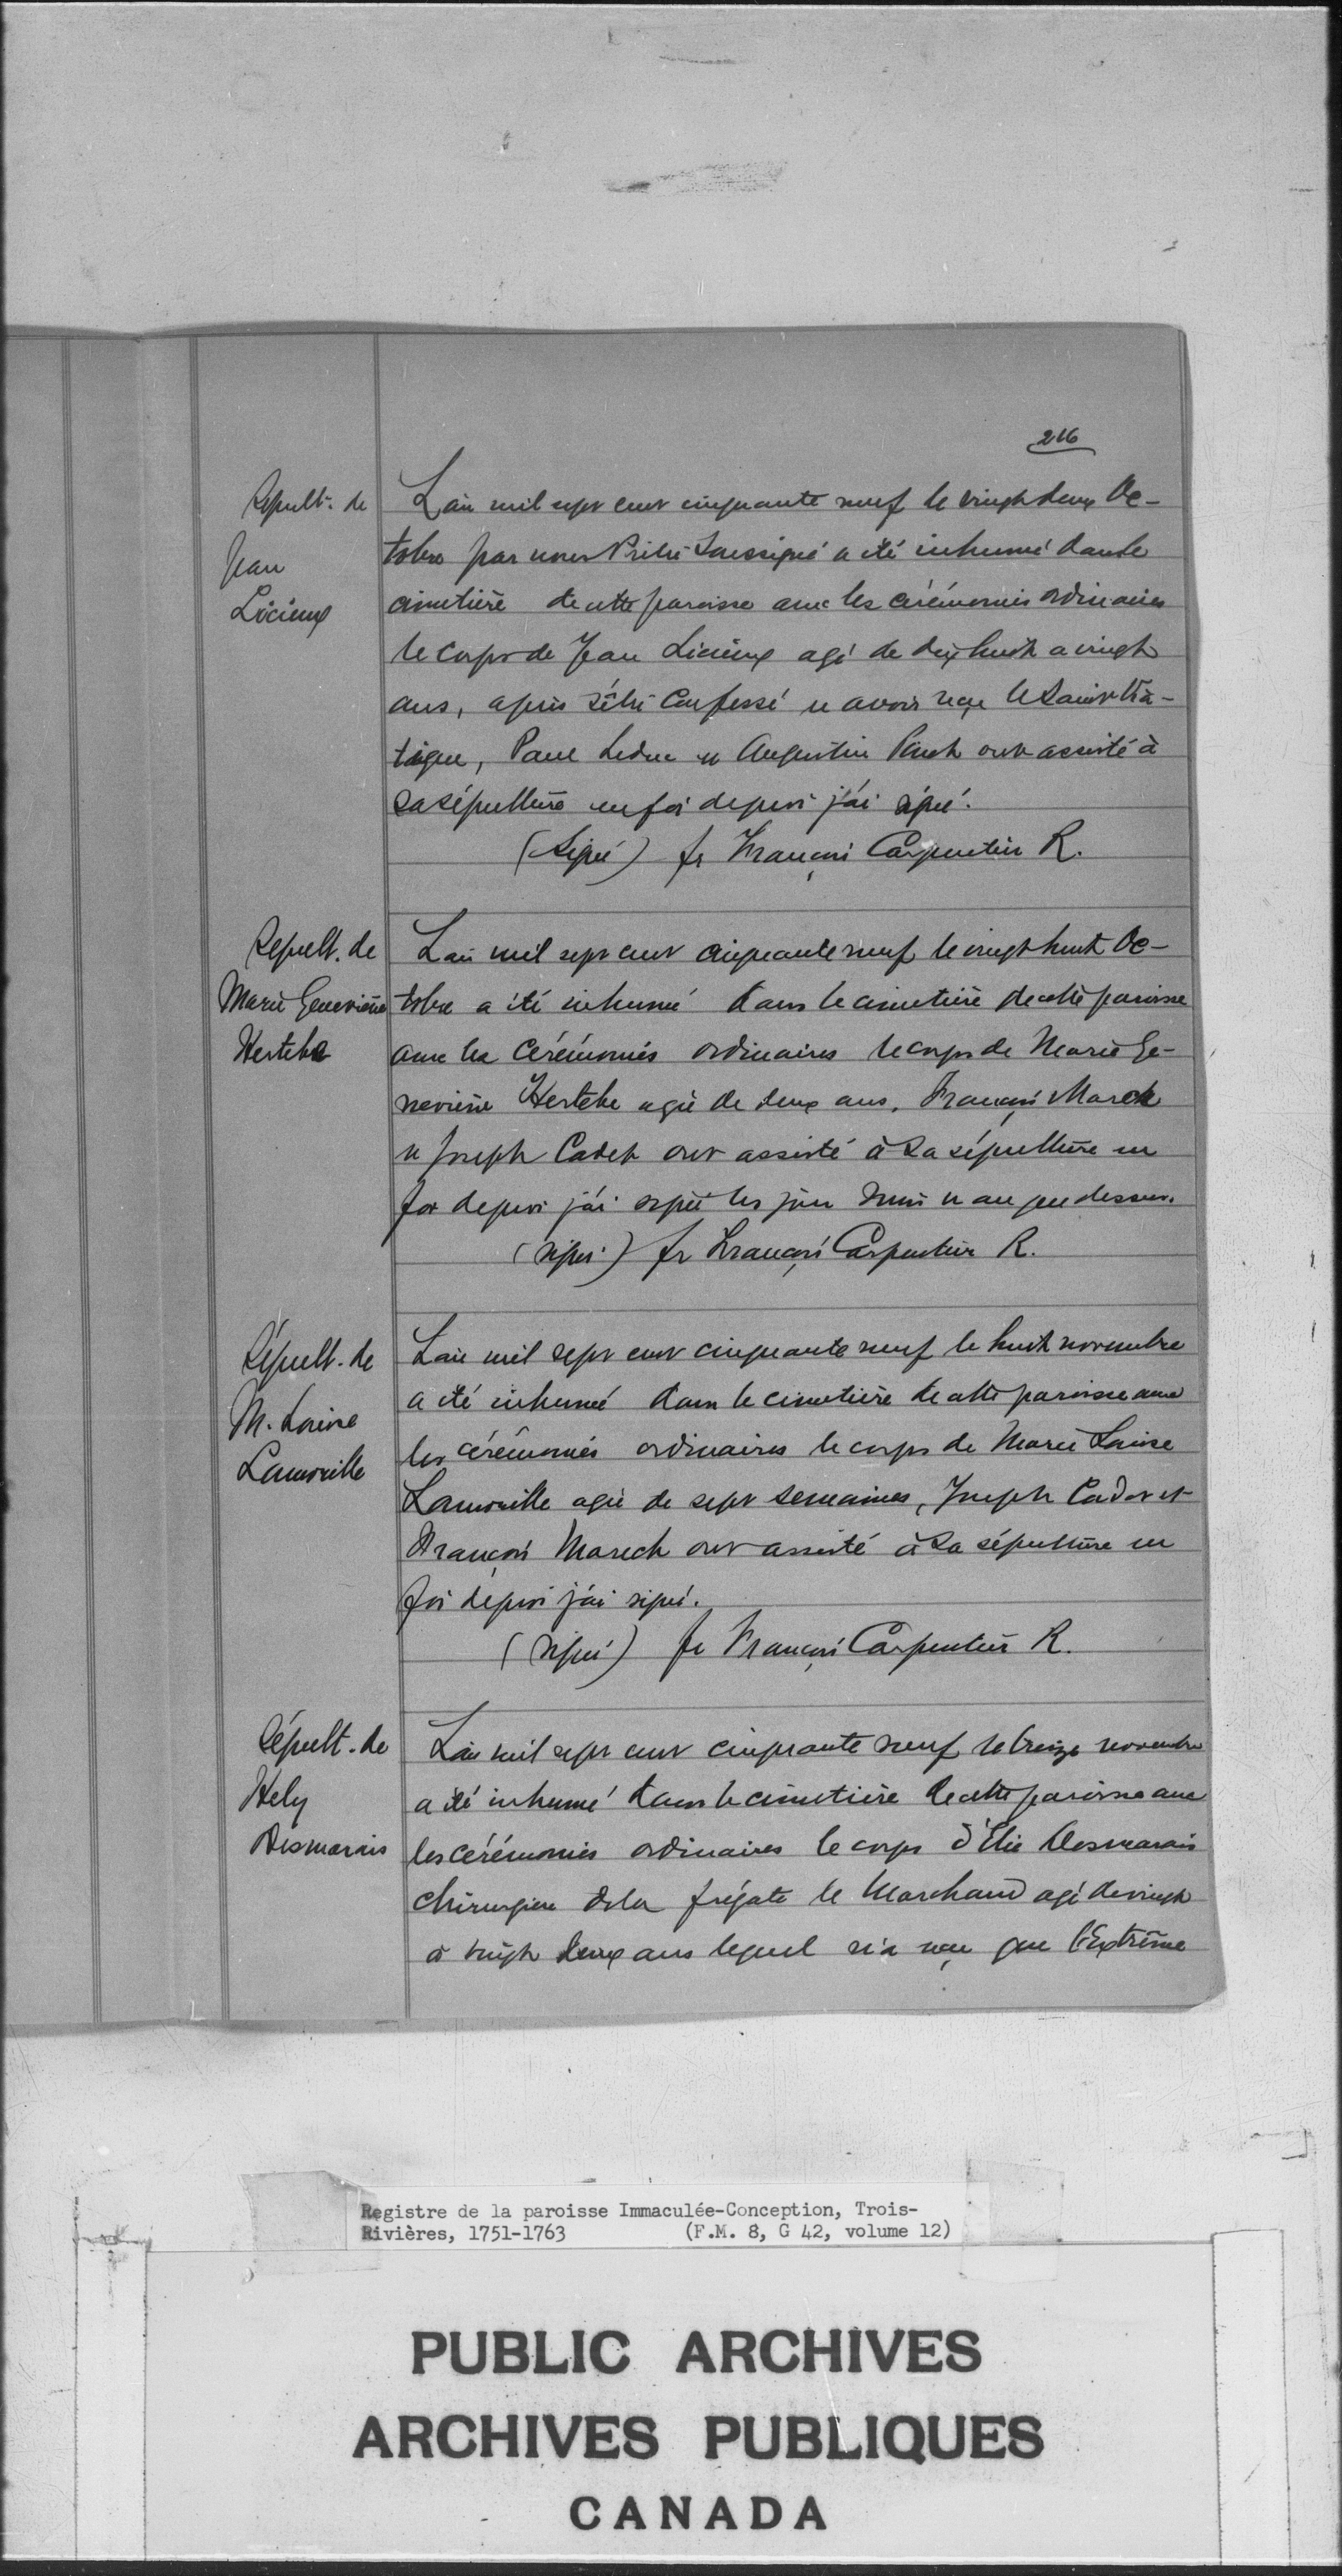 216
Sépult. de
Jean
Licieux
L'an mil sept cent cinquante neuf le vingt deux Oc-
tobre par nous Prêtre Soussigné a été inhumé dans le
cimetière de cette paroisse avec les cérémonies ordinaires
le corps de Jean Licieux agé de dix huit a vingt
ans, après s'être confessé et avoir reçu le Saint Via-
tique, Paul Leduc et Augustin ont assisté à
sa sépulture en foi de quoi j'ai signé.
(Signé) fr François Carpentier R.
Sépult. de
Marie Geneviève
Hertebe
L'an mil sept cent cinquante neuf le vingt huit Oc-
tobre a été inhumé dans le cimetière de cette paroisse
avec les cérémonies ordinaires le corps de Marie Ge-
neviève Hertebe agée de deux ans. François Marek
et Joseph Cadet ont assisté à sa sépulture en
foi de quoi j'ai signé les jour mois et an que dessus.
(signé) fr François Carpentier R.
Sépult. de
M. Louise
Lamorille
L'an mil sept cent cinquante neuf le huit novembre
a été inhumé dans le cimetière de cette paroisse avec
les cérémonies ordinaires le corps de Marie Louise
Lamorille agée de sept semaines, Joseph Cadet et
François Marech ont assisté à sa sépulture en
foi de quoi j'ai signé.
(signé) fr François Carpentier R.
Sépult. de
Hely
Desmarais
L'an mil sept cent cinquante neuf le treize novembre
a été inhumé dans le cimetière de cette paroisse avec
les cérémonies ordinaires le corps d'Elie Desmarais
chirurgien de la frégate le Marchand agé de vingt
à vingt deux ans lequel n'a reçu que l'Extrême
Registre de la paroisse Immaculée-Conception, Trois-
Rivières, 1751-1763 (F.M. 8, G 42, volume 12)
PUBLIC ARCHIVES
ARCHIVES PUBLIQUES
CANADA